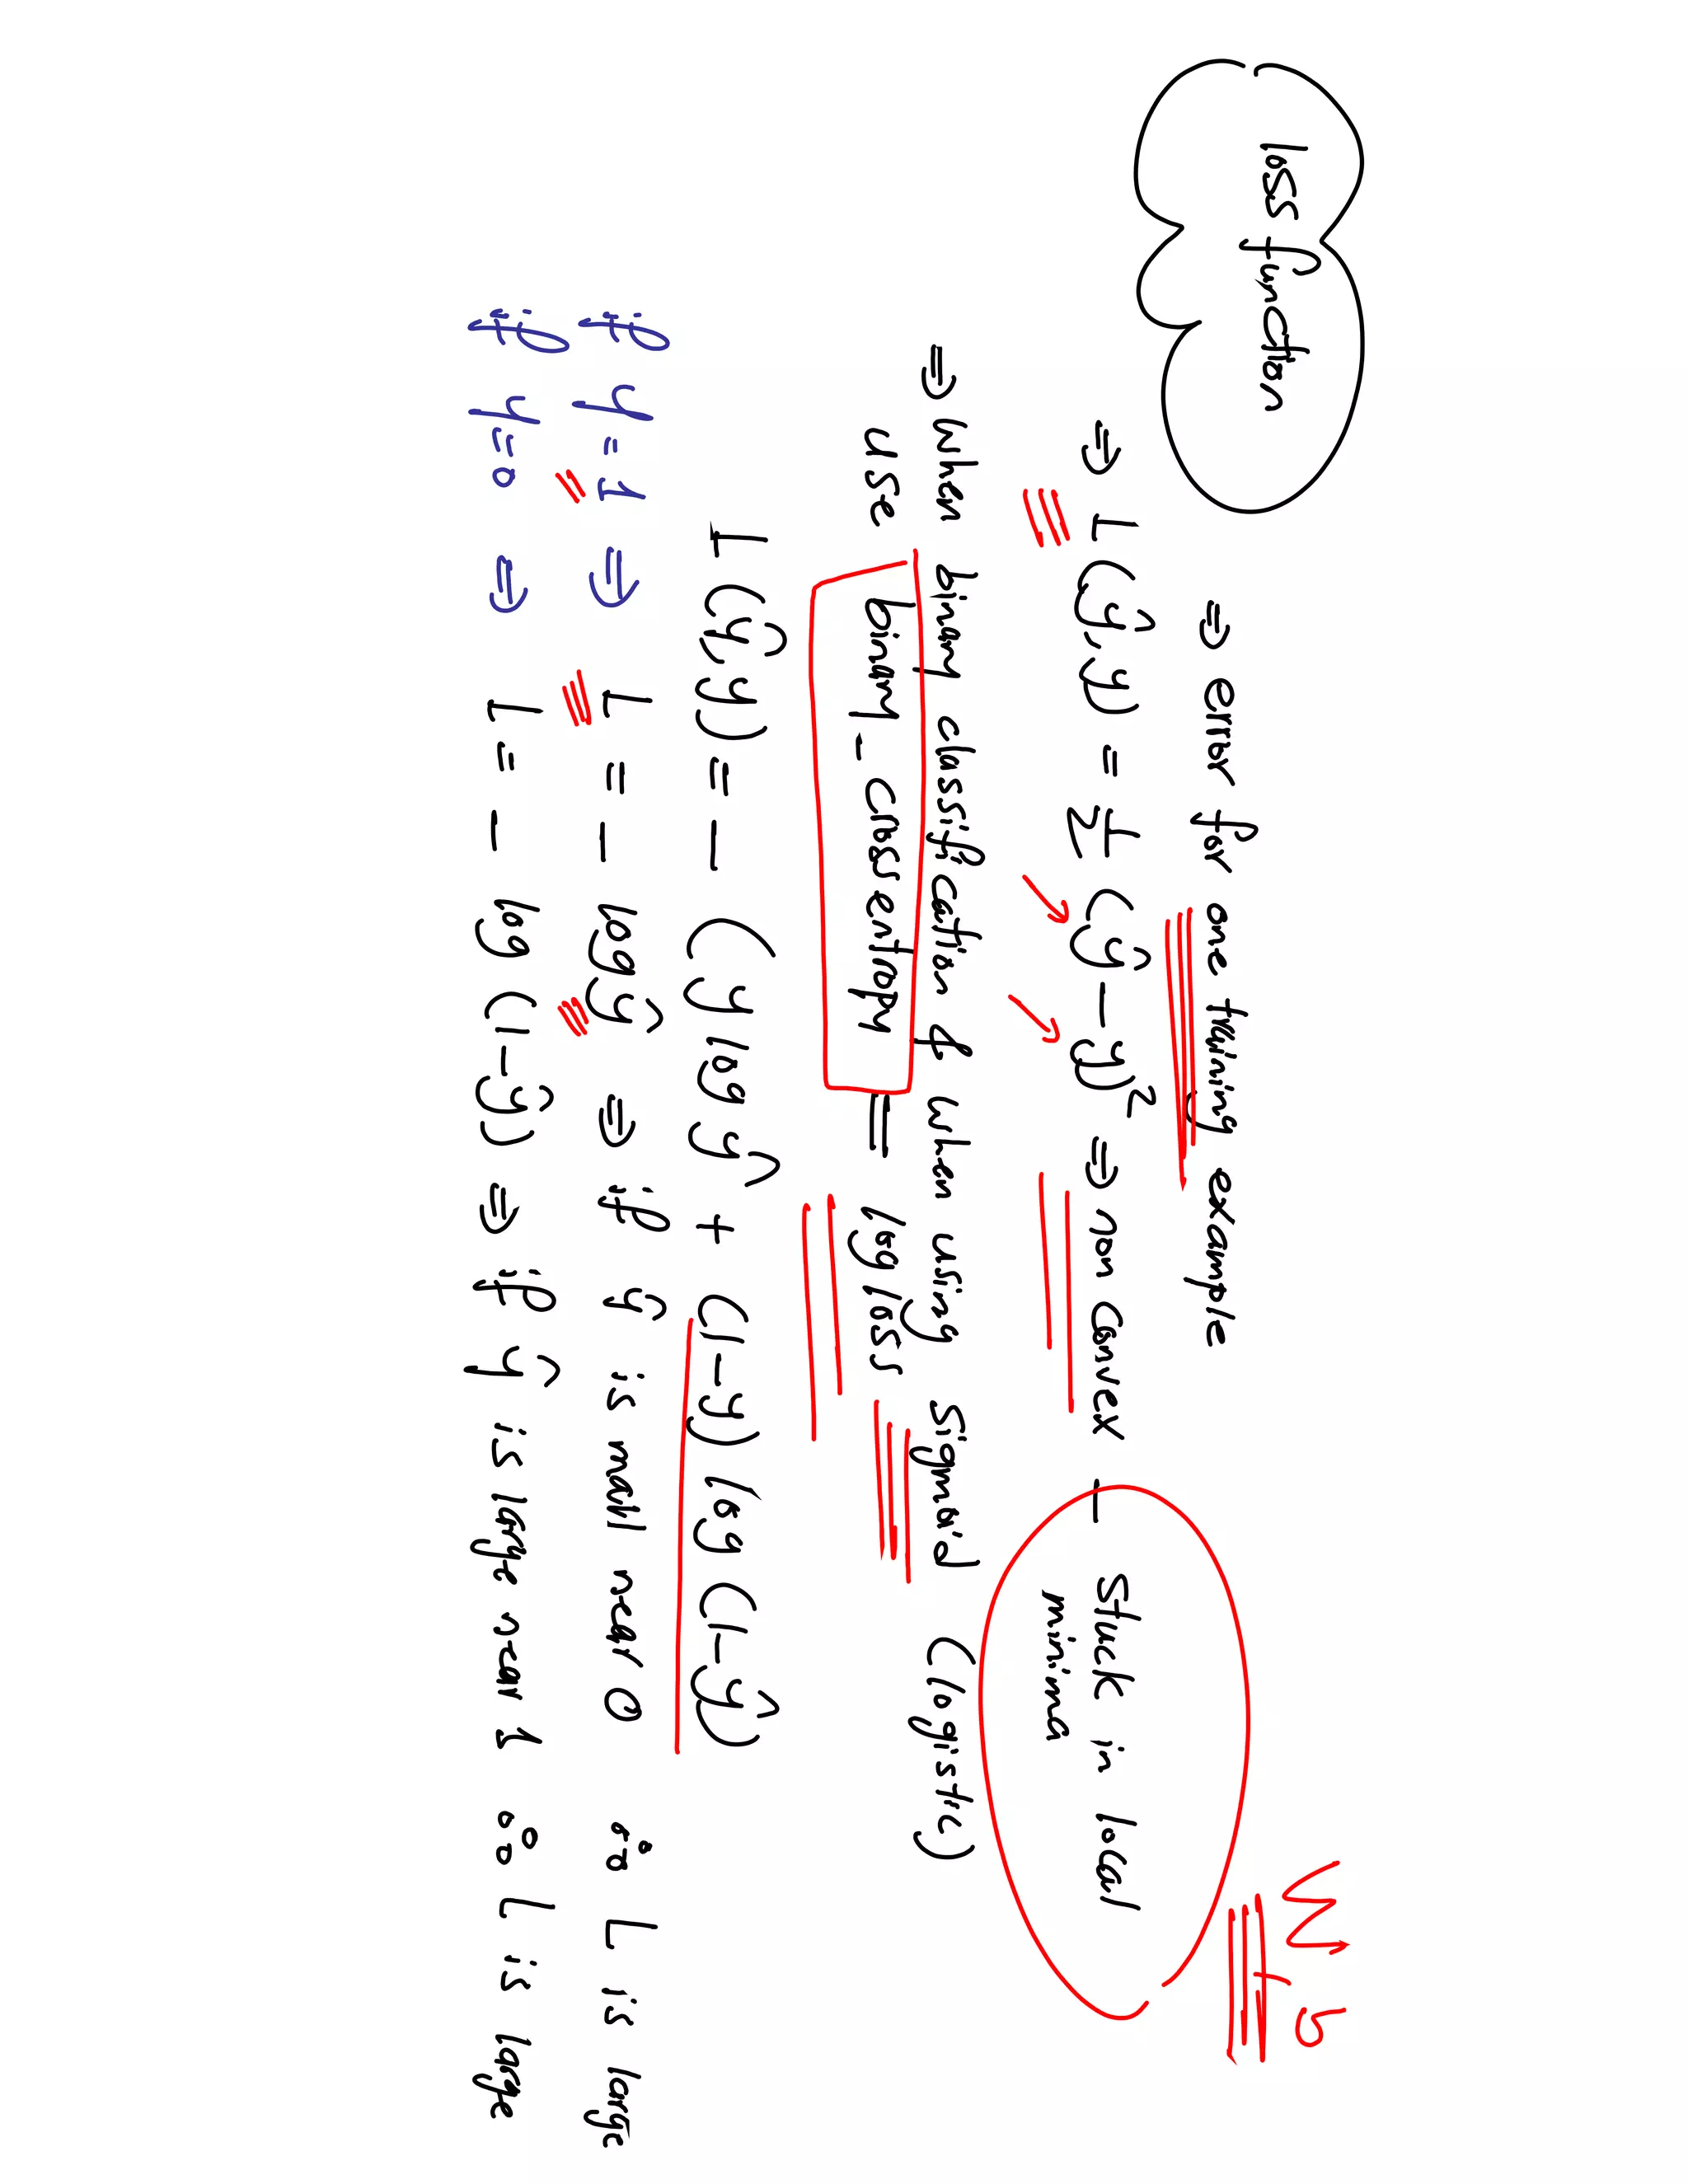 loss function
⇒ error for one training example
⇒ L(ŷ,y) = 1/2 (ŷ-y)² ⇒ non convex - stuck in local
minima
w, b
⇒ when binary classification & when using sigmoid (logistic)
use binary_crossentropy = log loss
L(ŷ,y) = - (y log ŷ + (1-y) log (1-ŷ)
if y=1 ⇒ L = - log ŷ ⇒ if ŷ is mall near 0 ∴ L is large
if y=0 ⇒ L = - log (1-ŷ) ⇒ if ŷ is large near 1 ∴ L is large